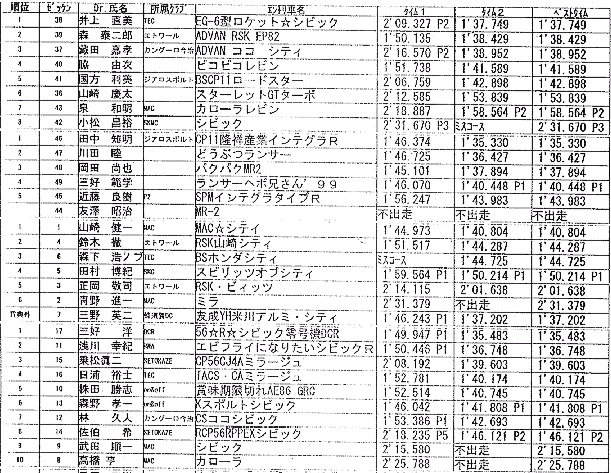 順位 ゼッケン Dr.氏名 所属クラブ エントラント車名 タイム1 タイム2 ベストタイム
1 38 井上 直美 TEC EG-6型ロケット☆シビック 2'09.327 P2 1'37.749 1'37.749
2 39 森 泰二郎 エトワール ADVAN RSK EP82 1'50.135 1'38.429 1'38.429
3 37 織田 嘉孝 カンダーロ今治 ADVAN ココ シティ 2'16.570 P2 1'38.952 1'38.952
4 40 脇 由次 ピコピコレビン 1'51.738 1'41.589 1'41.589
5 41 国方 利英 ジアロスポルト BSCP11ロードスター 2'06.759 1'42.898 1'42.898
6 36 山崎 慶太 スターレットGTターボ 2'12.585 1'53.839 1'53.839
7 43 泉 和明 MAC カローラレビン 2'18.887 1'58.564 P2 1'58.564 P2
8 42 小松 昌裕 SKMC シビック 2'31.670 P3 ミスコース 2'31.670 P3
1 46 田中 知明 ジアロスポルト CP11隆祥産業インテグラR 1'46.374 1'35.330 1'35.330
2 47 川田 睦 どうぶつランサー 1'46.725 1'36.427 1'36.427
3 48 岡田 尚也 パクパクMR2 1'45.101 1'37.894 1'37.894
4 49 三好 範学 ランサーヘボ兄さん'99 1'46.070 1'40.448 P1 1'40.448 P1
5 45 近藤 良樹 P2 SPMインテグラタイプR 1'56.247 1'43.983 1'43.983
44 友澤 昭治 MR-2 不出走 不出走 不出走
1 1 山崎 健一 MAC MAC☆シティ 1'44.973 1'40.804 1'40.804
2 4 鈴木 徹 エトワール RSK山崎シティ 1'51.517 1'44.287 1'44.287
3 6 森下 浩ノブ TEC BSホンダシティ ミスコース 1'44.725 1'44.725
4 5 田村 博紀 SKMC スピリッツオブシティ 1'59.564 P1 1'50.214 P1 1'50.214 P1
5 3 正岡 敬司 エトワール RSK・ビィッツ 2'14.115 2'01.638 2'01.638
6 2 青野 進一 MAC ミラ 2'31.379 不出走 2'31.379
賞典外 7 三野 英二 DC 友成YH米川アルミ・シティ 1'46.243 P1 1'37.202 1'37.202
1 17 三好 洋 DCR 56☆R☆シビック零号機DCR 1'49.947 P1 1'35.483 1'35.483
2 11 浅川 幸紀 エビフライになりたいシビックR 1'50.446 P1 1'36.748 1'36.748
3 15 乗松潤二 SETOKAZE CP56CJ4Aミラージュ 2'08.192 1'39.603 1'39.603
4 16 日浦 裕士 TEC TACS・CAミラージュ 1'52.781 1'40.174 1'40.174
5 10 株田 勝志 on&off 賞味期限切れAE86 GRC 1'52.514 1'40.745 1'40.745
6 13 森野 孝一 on&off Kスポルトシビック 1'46.042 1'41.808 P1 1'41.808 P1
7 12 林 久人 カンダーロ今治 CSココシビック 1'53.386 P1 1'42.693 1'42.693
8 14 佐伯 希 SETOKAZE RCP56RPPEXシビック 2'18.235 P5 1'46.121 P2 1'46.121 P2
9 9 武田 順一 MAC シビック 2'15.580 不出走 2'15.580
10 8 高橋 MAC カローラ 2'25.788 不出走 2'25.788